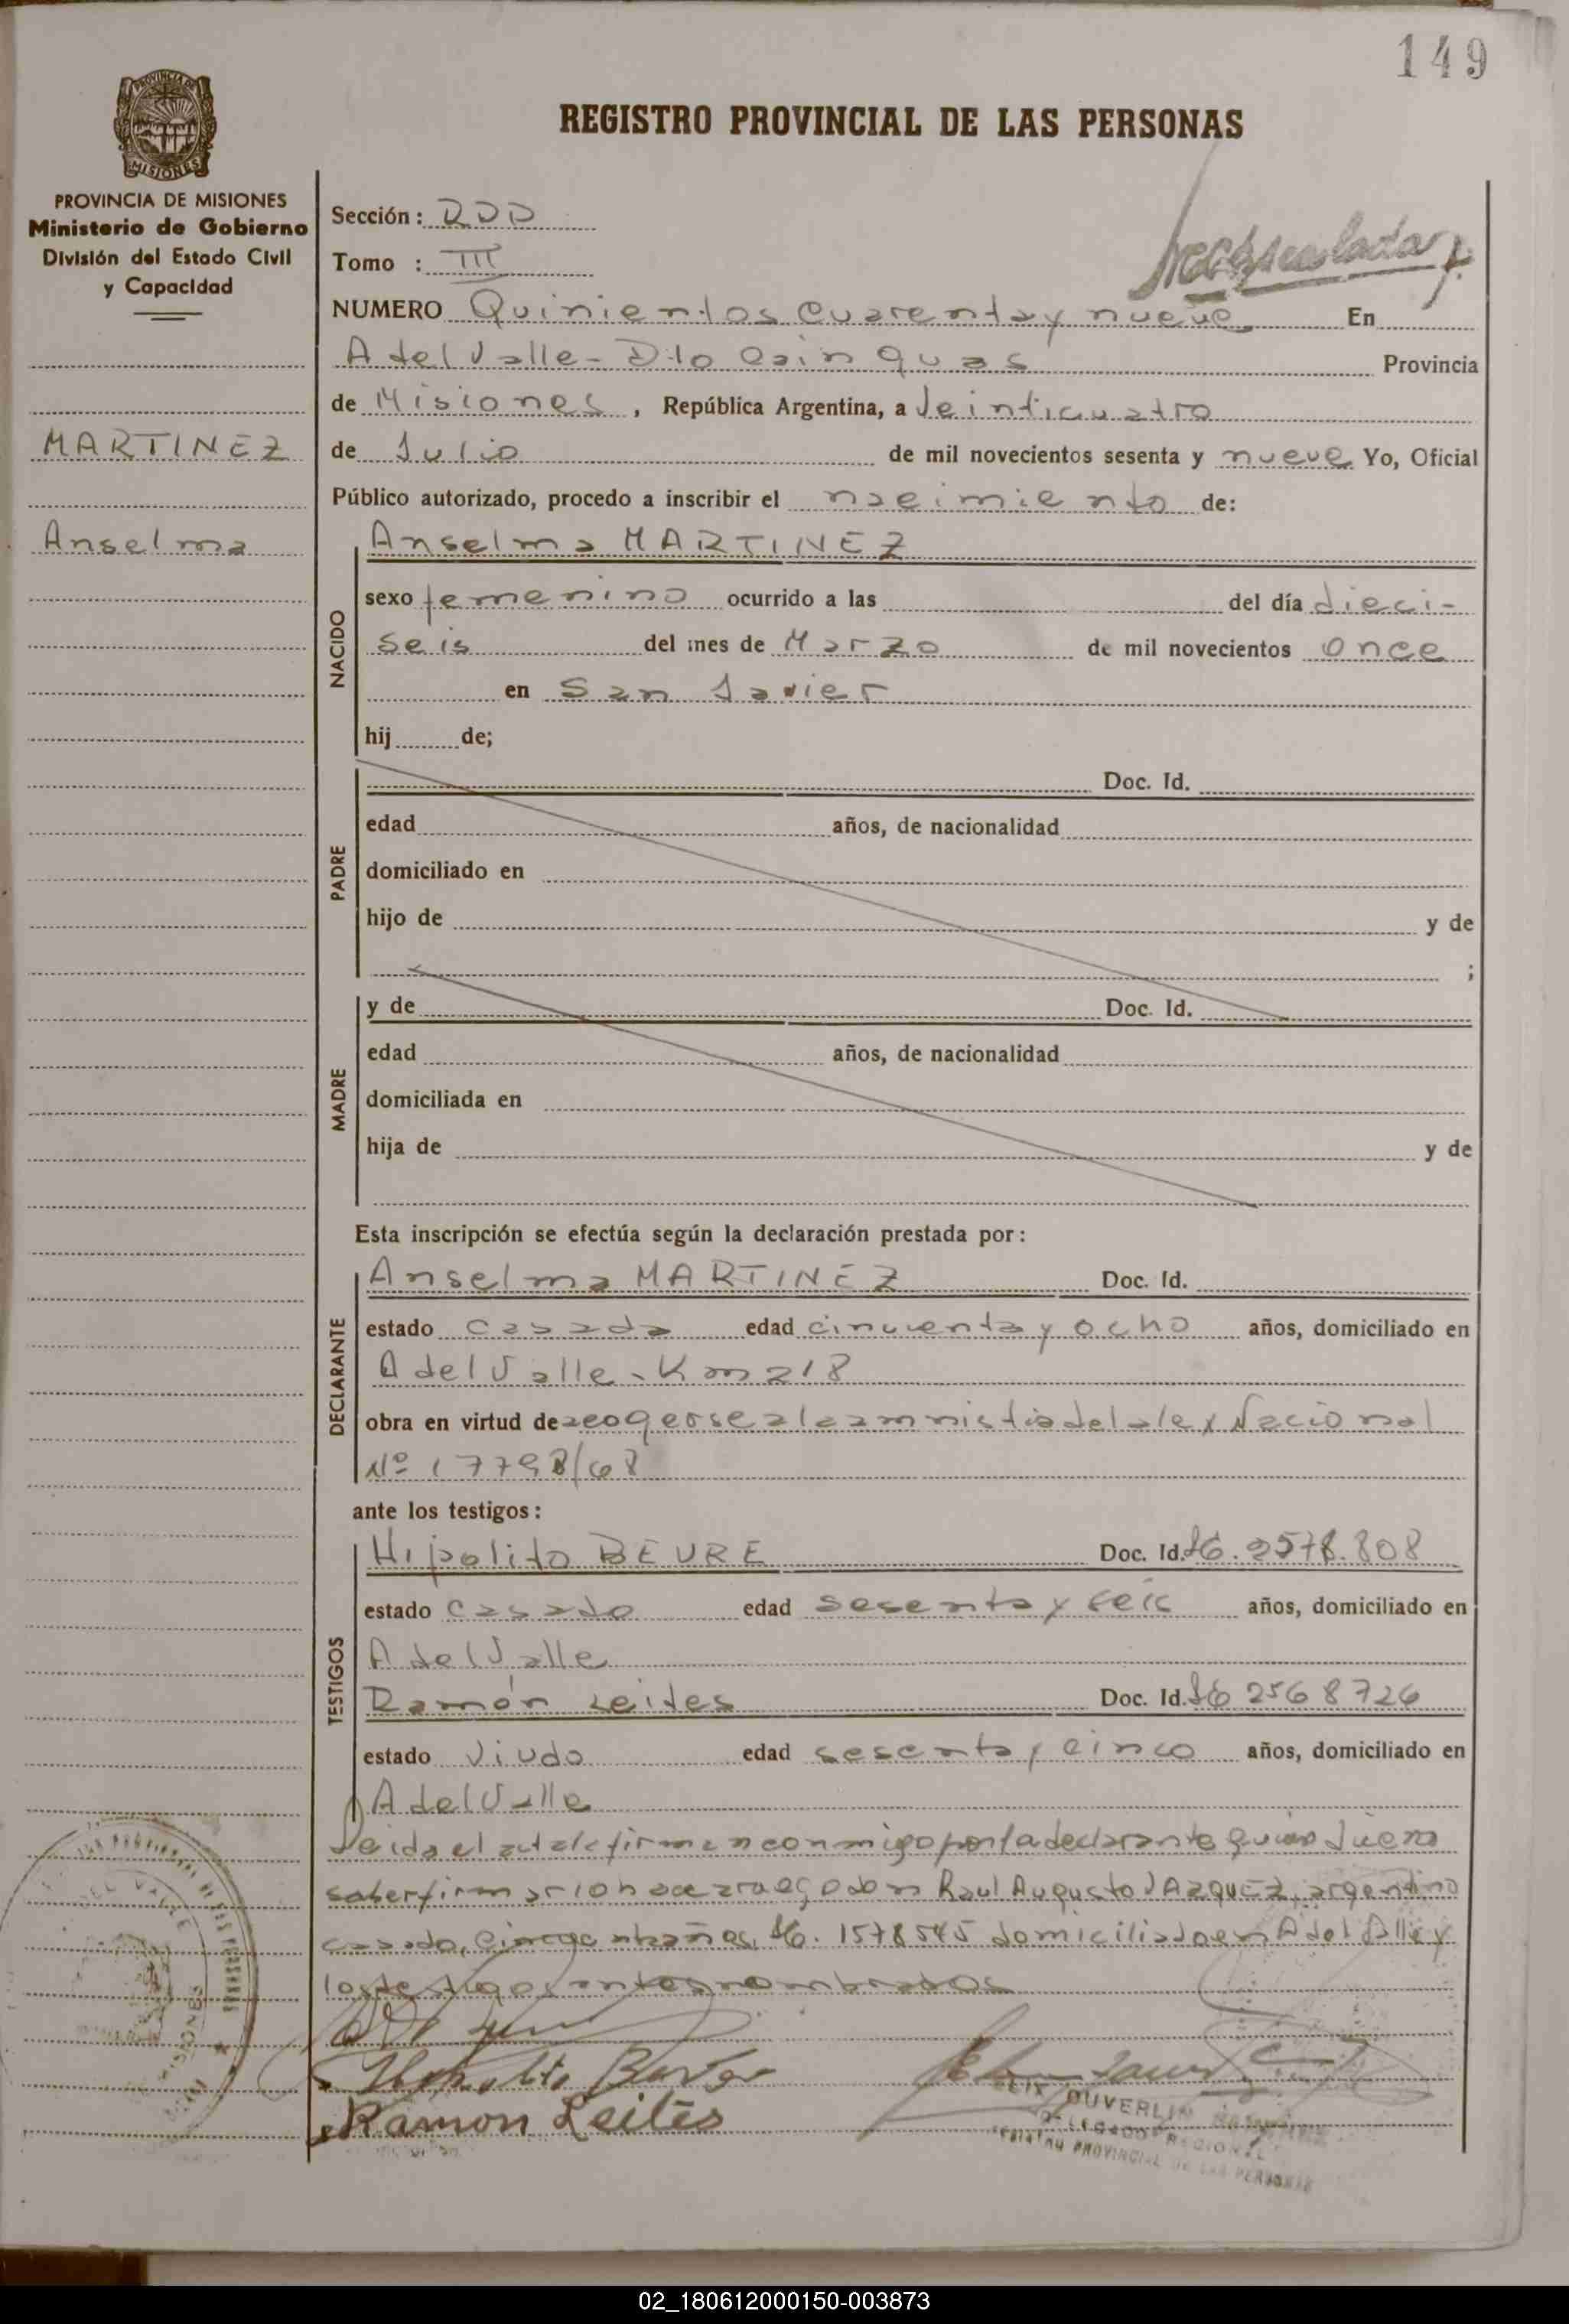 149
REGISTRO PROVINCIAL DE LAS PERSONAS
PROVINCIA DE
MISIONES
PROVINCIA DE MISIONES
Ministerio de Gobierno
División del Estado Civil
y Capacidad
MARTINEZ
Anselma
Sección: RDD
Tomo : III
NUMERO Quinientos cuarenta y nueve En
A del Valle - Dto Cainguas Provincia
de Misiones, República Argentina, a Veinticuatro
de Julio de mil novecientos sesenta y nueve Yo, Oficial
Público autorizado, procedo a inscribir el nacimiento de:
NACIDO
Anselma MARTINEZ
sexo femenino ocurrido a las del día dieci-
seis del mes de Marzo de mil novecientos once
en San Javier
hij de;
PADRE
Doc. Id.
edad años, de nacionalidad
domiciliado en
hijo de y de
;
MADRE
y de Doc. Id.
edad años, de nacionalidad
domiciliada en
hija de y de
Esta inscripción se efectúa según la declaración prestada por:
DECLARANTE
Anselma MARTINEZ Doc. Id.
estado casada edad cincuenta y ocho años, domiciliado en
A del Valle - Km 218
obra en virtud de acogerse a la amnistia de la ley Nacional
Nº 17798/68
ante los testigos:
TESTIGOS
Hipolito BEVRE Doc. Id. 2578.808
estado casado edad sesenta y seis años, domiciliado en
A del Valle
Ramón Leites Doc. Id. 2568726
estado Viudo edad sesenta y cinco años, domiciliado en
A del Valle
Leida el acta la firman conmigo por la declarante quien
saber firmar lo hace a ruego don Raul Augusto VAZQUEZ, argentino
casado, 1578545 domiciliado en A del Valle y
los testigos antes nombrados
Ramon Leites
OUVERLIN
DELEGADO REGIONAL
REGISTRO PROVINCIAL DE LAS PERSONAS
DEL VALLE
MISIONES
02_180612000150-003873